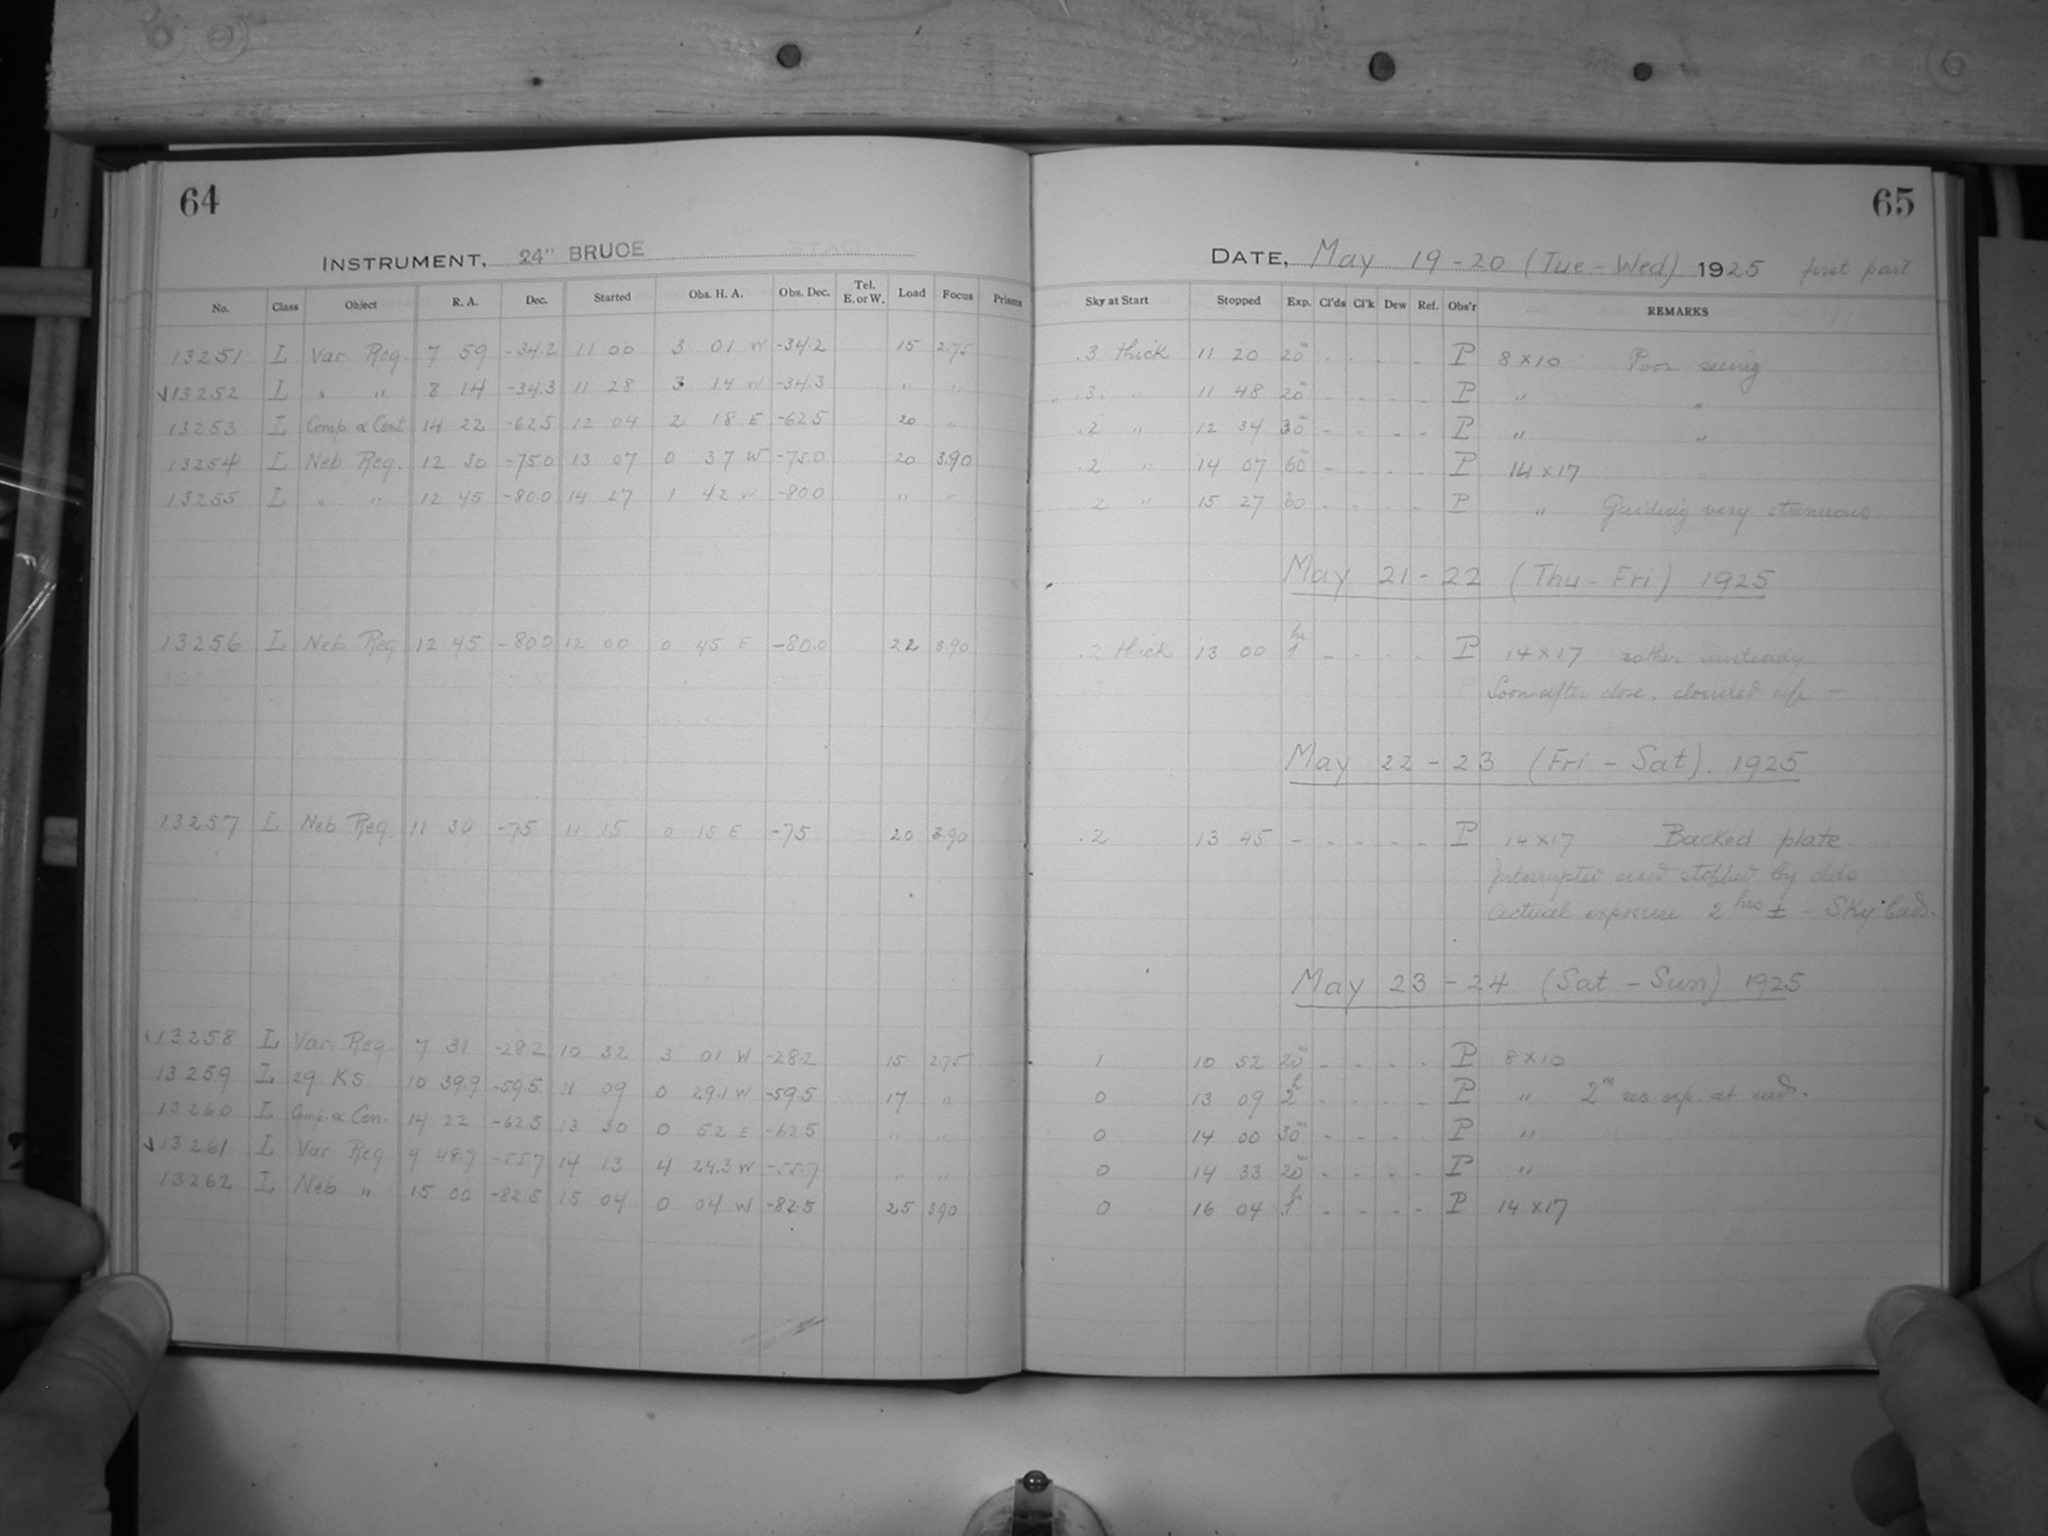 64
INSTRUMENT, 24" BRUCE
No. Class Object R. A. Dec. Started Obs. H. A. Obs. Dec. Tel. E. or W. Load Focus Prisms
13251 L Var. Reg. 7 59 -34.2 11 00 3 01 W -34.2 15 2.75
√13252 L " " 8 14 -34.3 11 28 3 14 W -34.3 " "
13253 L Comp α Cent 14 22 -62.5 12 04 2 18 E -62.5 20 "
13254 L Neb Reg. 12 30 -75.0 13 07 0 37 W -75.0 20 3.90
13255 L " " 12 45 -80.0 14 27 1 42 W -80.0 " "
13256 L Neb Reg 12 45 -80.0 12 00 0 45 E -80.0 22 3.90
13257 L Neb Reg 11 30 -75 11 15 0 15 E -75 20 3.90
√13258 L Var. Reg. 7 31 -28.2 10 32 3 01 W -28.2 15 2.75
13259 L 29 KS 10 39.9 -59.5 11 09 0 29.1 W -59.5 17 "
13260 L Comp. α Cen. 14 22 -62.5 13 30 0 52 E -62.5 " "
√13261 L Var Reg 9 48.7 -55.7 14 13 4 24.3 W -55.7 " "
13262 L Neb " 15 00 -82.5 15 04 0 04 W -82.5 25 3.90
65
DATE, May 19-20 (Tue-Wed) 1925 first part
Sky at Start Stopped Exp. Cl'ds Cl'k Dew Ref. Obs'r REMARKS
.3 thick 11 20 20m - - - - P 8x10 Poor seeing
.3 " 11 48 20m - - - - P " "
.2 " 12 34 30m - - - - P " "
.2 " 14 07 60m - - - - P 14x17
.2 " 15 27 60 - - - - P " Guiding very strenuous
May 21-22 (Thu-Fri) 1925
.2 thick 13 00 1hr - - - - P 14x17 rather unsteady
Soon after close, clouded up -
May 22-23 (Fri-Sat). 1925
.2 13 45 - - - - - P 14x17 Backed plate.
Interrupted and stopped by clds
Actual exposure 2 hrs ± - Sky bad.
May 23-24 (Sat-Sun) 1925
1 10 52 20m - - - - P 8x10
0 13 09 2h - - - - P " 2m sec. exp. at end.
0 14 00 30m - - - - P "
0 14 33 20m - - - - P "
0 16 04 1h - - - - P 14x17